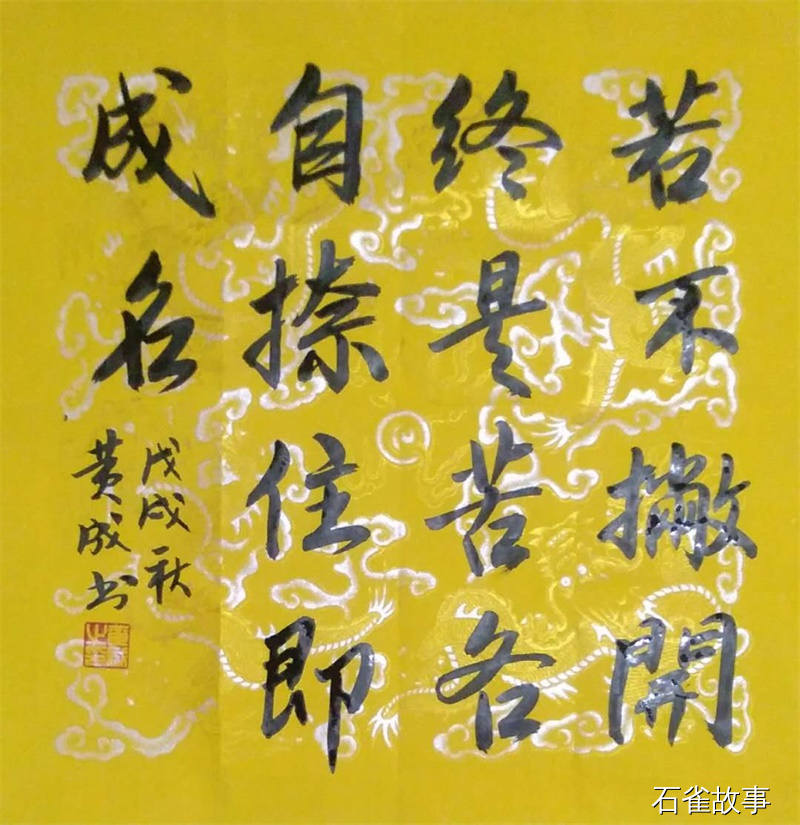 若不撇開
終是苦各
自捺住即
成名
戊戌秋
黄成书
石雀故事